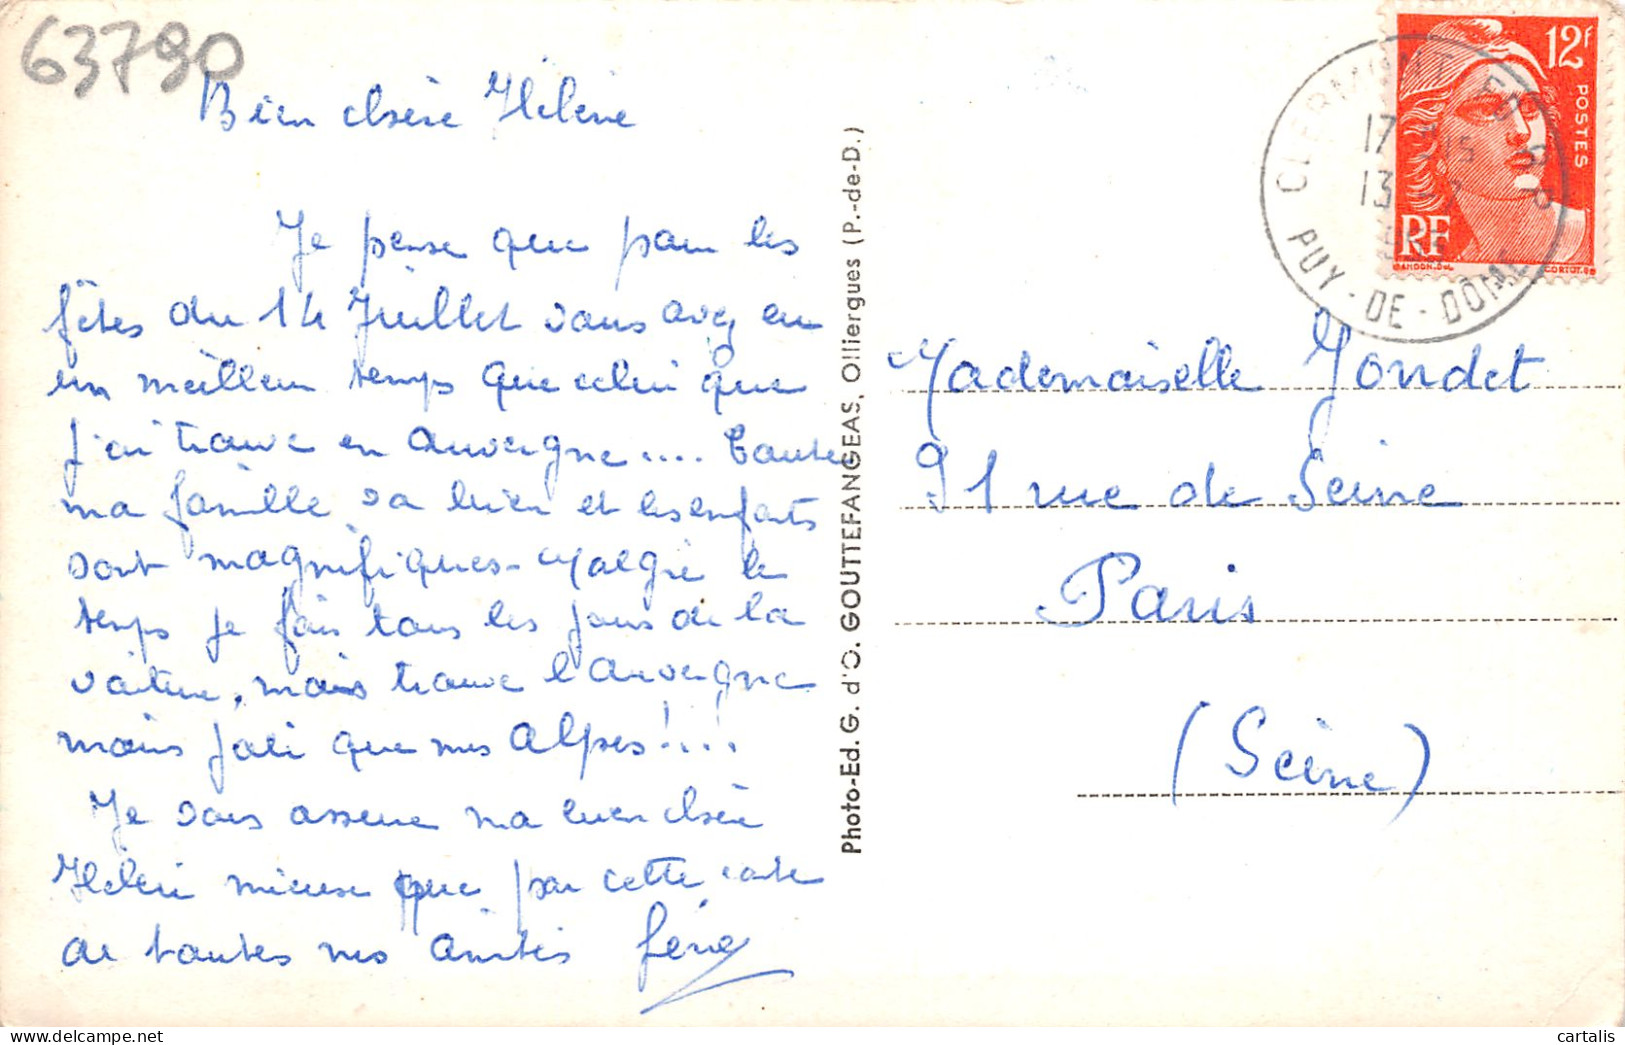 63790
Bien chère Hélène
Je pense que pour les
fêtes du 14 Juillet vous avez eu
un meilleur temps que celui que
j'ai trouvé en Auvergne.... Toute
ma famille va bien et les enfants
sont magnifiques. Malgré le
temps je fais tous les jours de la
voiture, mais trouve l'Auvergne
moins joli que mes Alpes!...
Je vous assure ma bien chère
Hélène mieux que par cette carte
de toutes mes amitiés
Photo-Ed. G. d'O. GOUTTEFANGEAS, Olliergues (P.-de-D.)
12F
POSTES
RF
GANDON.DEL.
CORTOT.
CLERMONT-FD
17 15
13
PUY-DE-DÔME
Mademoiselle Gondet
91 rue de Seine
Paris
(Seine)
cartalis